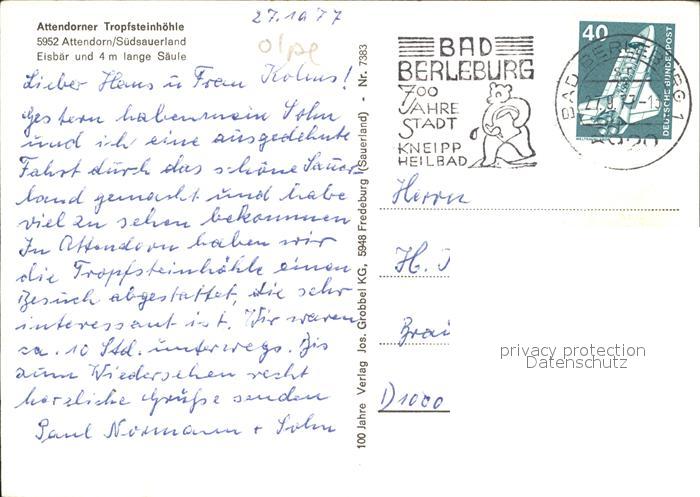 27.10.77
Attendorner Tropfsteinhöhle
5952 Attendorn/Südsauerland
Eisbär und 4 m lange Säule
Olpe
Lieber Hans u Frau Kohns!
Gestern haben mein Sohn
und ich eine ausgedehnte
Fahrt durch das schöne Sauer-
land gemacht und habe
viel zu sehen bekommen
In Attendorn haben wir
die Tropfsteinhöhle einen
Besuch abgestattet, die sehr
interessant ist. Wir waren
ca. 10 Std. unterwegs. Bis
zum Wiedersehen recht
herzliche Grüße senden
Paul Normann + Sohn
100 Jahre Verlag Jos. Grobbel KG, 5948 Fredeburg (Sauerland) - Nr. 7383
BAD
BERLEBURG
700
JAHRE
STADT
KNEIPP
HEILBAD
BAD BERLEBURG 1
40
DEUTSCHE BUNDESPOST
Herrn
H. J
Brai
D1000
privacy protection
Datenschutz